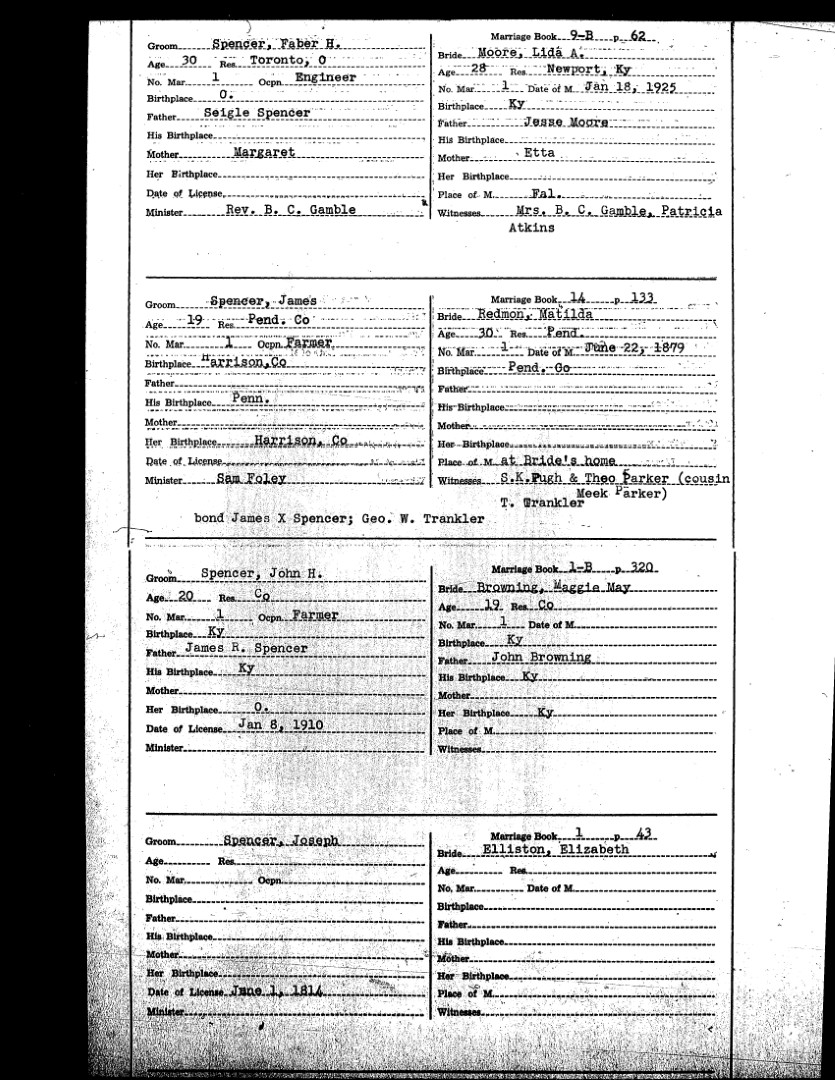 Groom Spencer, Faber H.
Age 30 Res Toronto, O
No. Mar. 1 Ocpn. Engineer
Birthplace O.
Father Seigle Spencer
His Birthplace
Mother Margaret
Her Birthplace
Date of License
Minister Rev. B. C. Gamble
Marriage Book 9-B p. 62
Bride Moore, Lida A.
Age 28 Res Newport, Ky
No. Mar. 1 Date of M. Jan 18, 1925
Birthplace Ky
Father Jesse Moore
His Birthplace
Mother Etta
Her Birthplace
Place of M. Fal.
Witnesses Mrs. B. C. Gamble, Patricia
Atkins
Groom Spencer, James
Age 19 Res Pend. Co
No. Mar. 1 Ocpn. Farmer
Birthplace Harrison,Co
Father
His Birthplace Penn.
Mother
Her Birthplace Harrison, Co
Date of License
Minister Sam Foley
Marriage Book 14 p. 133
Bride Redmon, Matilda
Age 30 Res Pend.
No. Mar. 1 Date of M. June 22, 1879
Birthplace Pend. Co
Father
His Birthplace
Mother
Her Birthplace
Place of M. at Bride's home
Witnesses S.K.Pugh & Theo Parker (cousin
Meek Parker)
T. Trankler
bond James X Spencer; Geo. W. Trankler
Groom Spencer, John H.
Age 20 Res Co
No. Mar. 1 Ocpn. Farmer
Birthplace Ky
Father James R. Spencer
His Birthplace Ky
Mother
Her Birthplace O.
Date of License Jan 8, 1910
Minister
Marriage Book 1-B p. 320
Bride Browning, Maggie May
Age 19 Res Co
No. Mar. 1 Date of M.
Birthplace Ky
Father John Browning
His Birthplace Ky
Mother
Her Birthplace Ky
Place of M.
Witnesses
Groom Spencer, Joseph
Age Res
No. Mar. Ocpn.
Birthplace
Father
His Birthplace
Mother
Her Birthplace
Date of License June 1, 1814
Minister
Marriage Book 1 p. 43
Bride Elliston, Elizabeth
Age Res
No. Mar. Date of M.
Birthplace
Father
His Birthplace
Mother
Her Birthplace
Place of M.
Witnesses